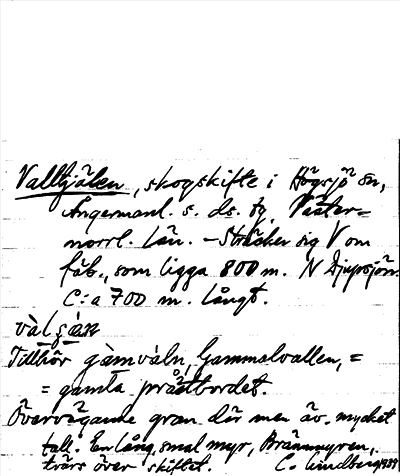 Valltjälen, skogskifte i Högsjö sn,
Ångermanl. s. ds. tg, Väster=
norrl. län. – Sträcker sig V om
fäb., som ligga 800 m. N Djupsjön.
C:a 700 m. långt.
Tillhör gàmvàln, Gammalvallen, =
= gamla prästbordet.
Övervägande gran där men äv. mycket
tall. En lång, smal myr, Brännmyren,
tvärs över skiftet. C. Lindberg 1939